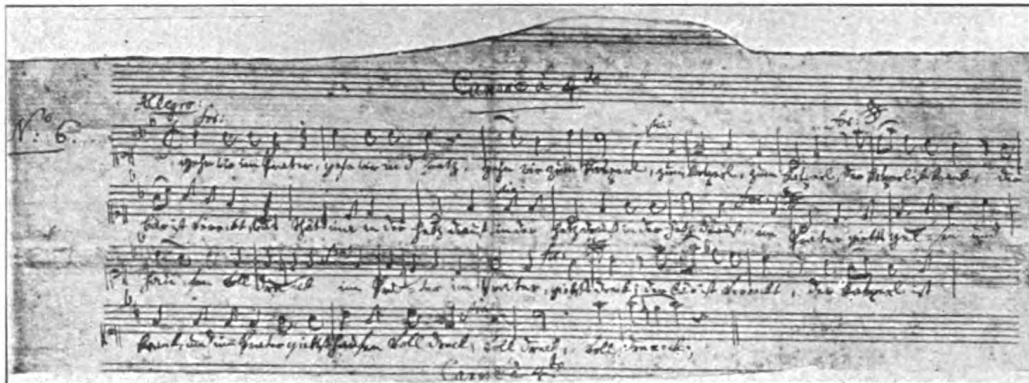 Canone à 4.do
No. 6. Allegro: for: fin: for:
gehn wir im Prater, gehn wir in d'Hetz, gehn wir zum Kasperl, zum Kasperl, zum Kasperl, der Kasperl ist krank, der
bär ist verreckt, was thät ma in der Hetz draus, in der Hetz draus, in der Hetz draus, im Prater giebts gelsen und
haufen voll dreck im Prater im Prater, giebts dreck; der bär ist verreckt, der Kasperl ist
krank, und im Prater giebts haufen voll dreck, voll dreck, voll dreck;
Canone à 4.do